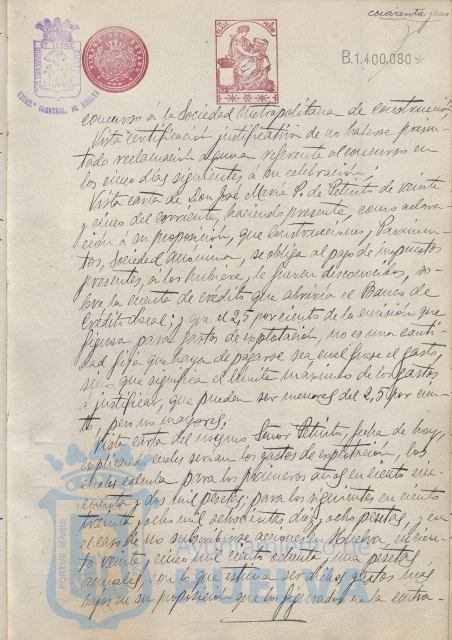 cuarenta y uno
B.1.400.080*
AYUNT. CONSTNAL. DE HUELVA
concurso á la Sociedad Metropolitana de Construcción,
Vista certificación justificativa de no haberse presen-
tado reclamación alguna referente al concurso en
los cinco días siguientes á su celebración,
Vista carta de Don José María P. de Petinto de veinte
y cinco del corriente, haciendo presente, como aclara-
ción á su proposición, que Construcciones y Pavimen-
tos, Sociedad Anónima, se obliga al pago de impuestos
presentes, si los hubiere, y fueran desconocidos, so-
bre la cuenta de crédito que abriría el Banco de
Crédito Local; y que el 2,5 por ciento de la emisión que
figura para gastos de explotación, no es una canti-
dad fija que haya de pagarse sea cual fuese el gasto,
sino que significa el límite máximo de los gastos
á justificar, que pueden ser menores del 2,5 por cien-
to, pero no mayores;
Vista carta del mismo Señor Petinto, fecha de hoy,
explicando cuales serían los gastos de explotación, los
cuales calcula para los primeros años en ciento cin-
cuenta y dos mil pesetas; para los siguientes en ciento
treinta y ocho mil seiscientas diez y ocho pesetas, y en
el caso de no subscribirse acciones en Huelva, en cien-
to veinte y cinco mil ciento ochenta y una pesetas
anuales, con lo que estima ser dichos gastos más
bajos en su proposición que los figurados en la contra-
PORTUS MARIS
Ayuntamiento de
HUELVA